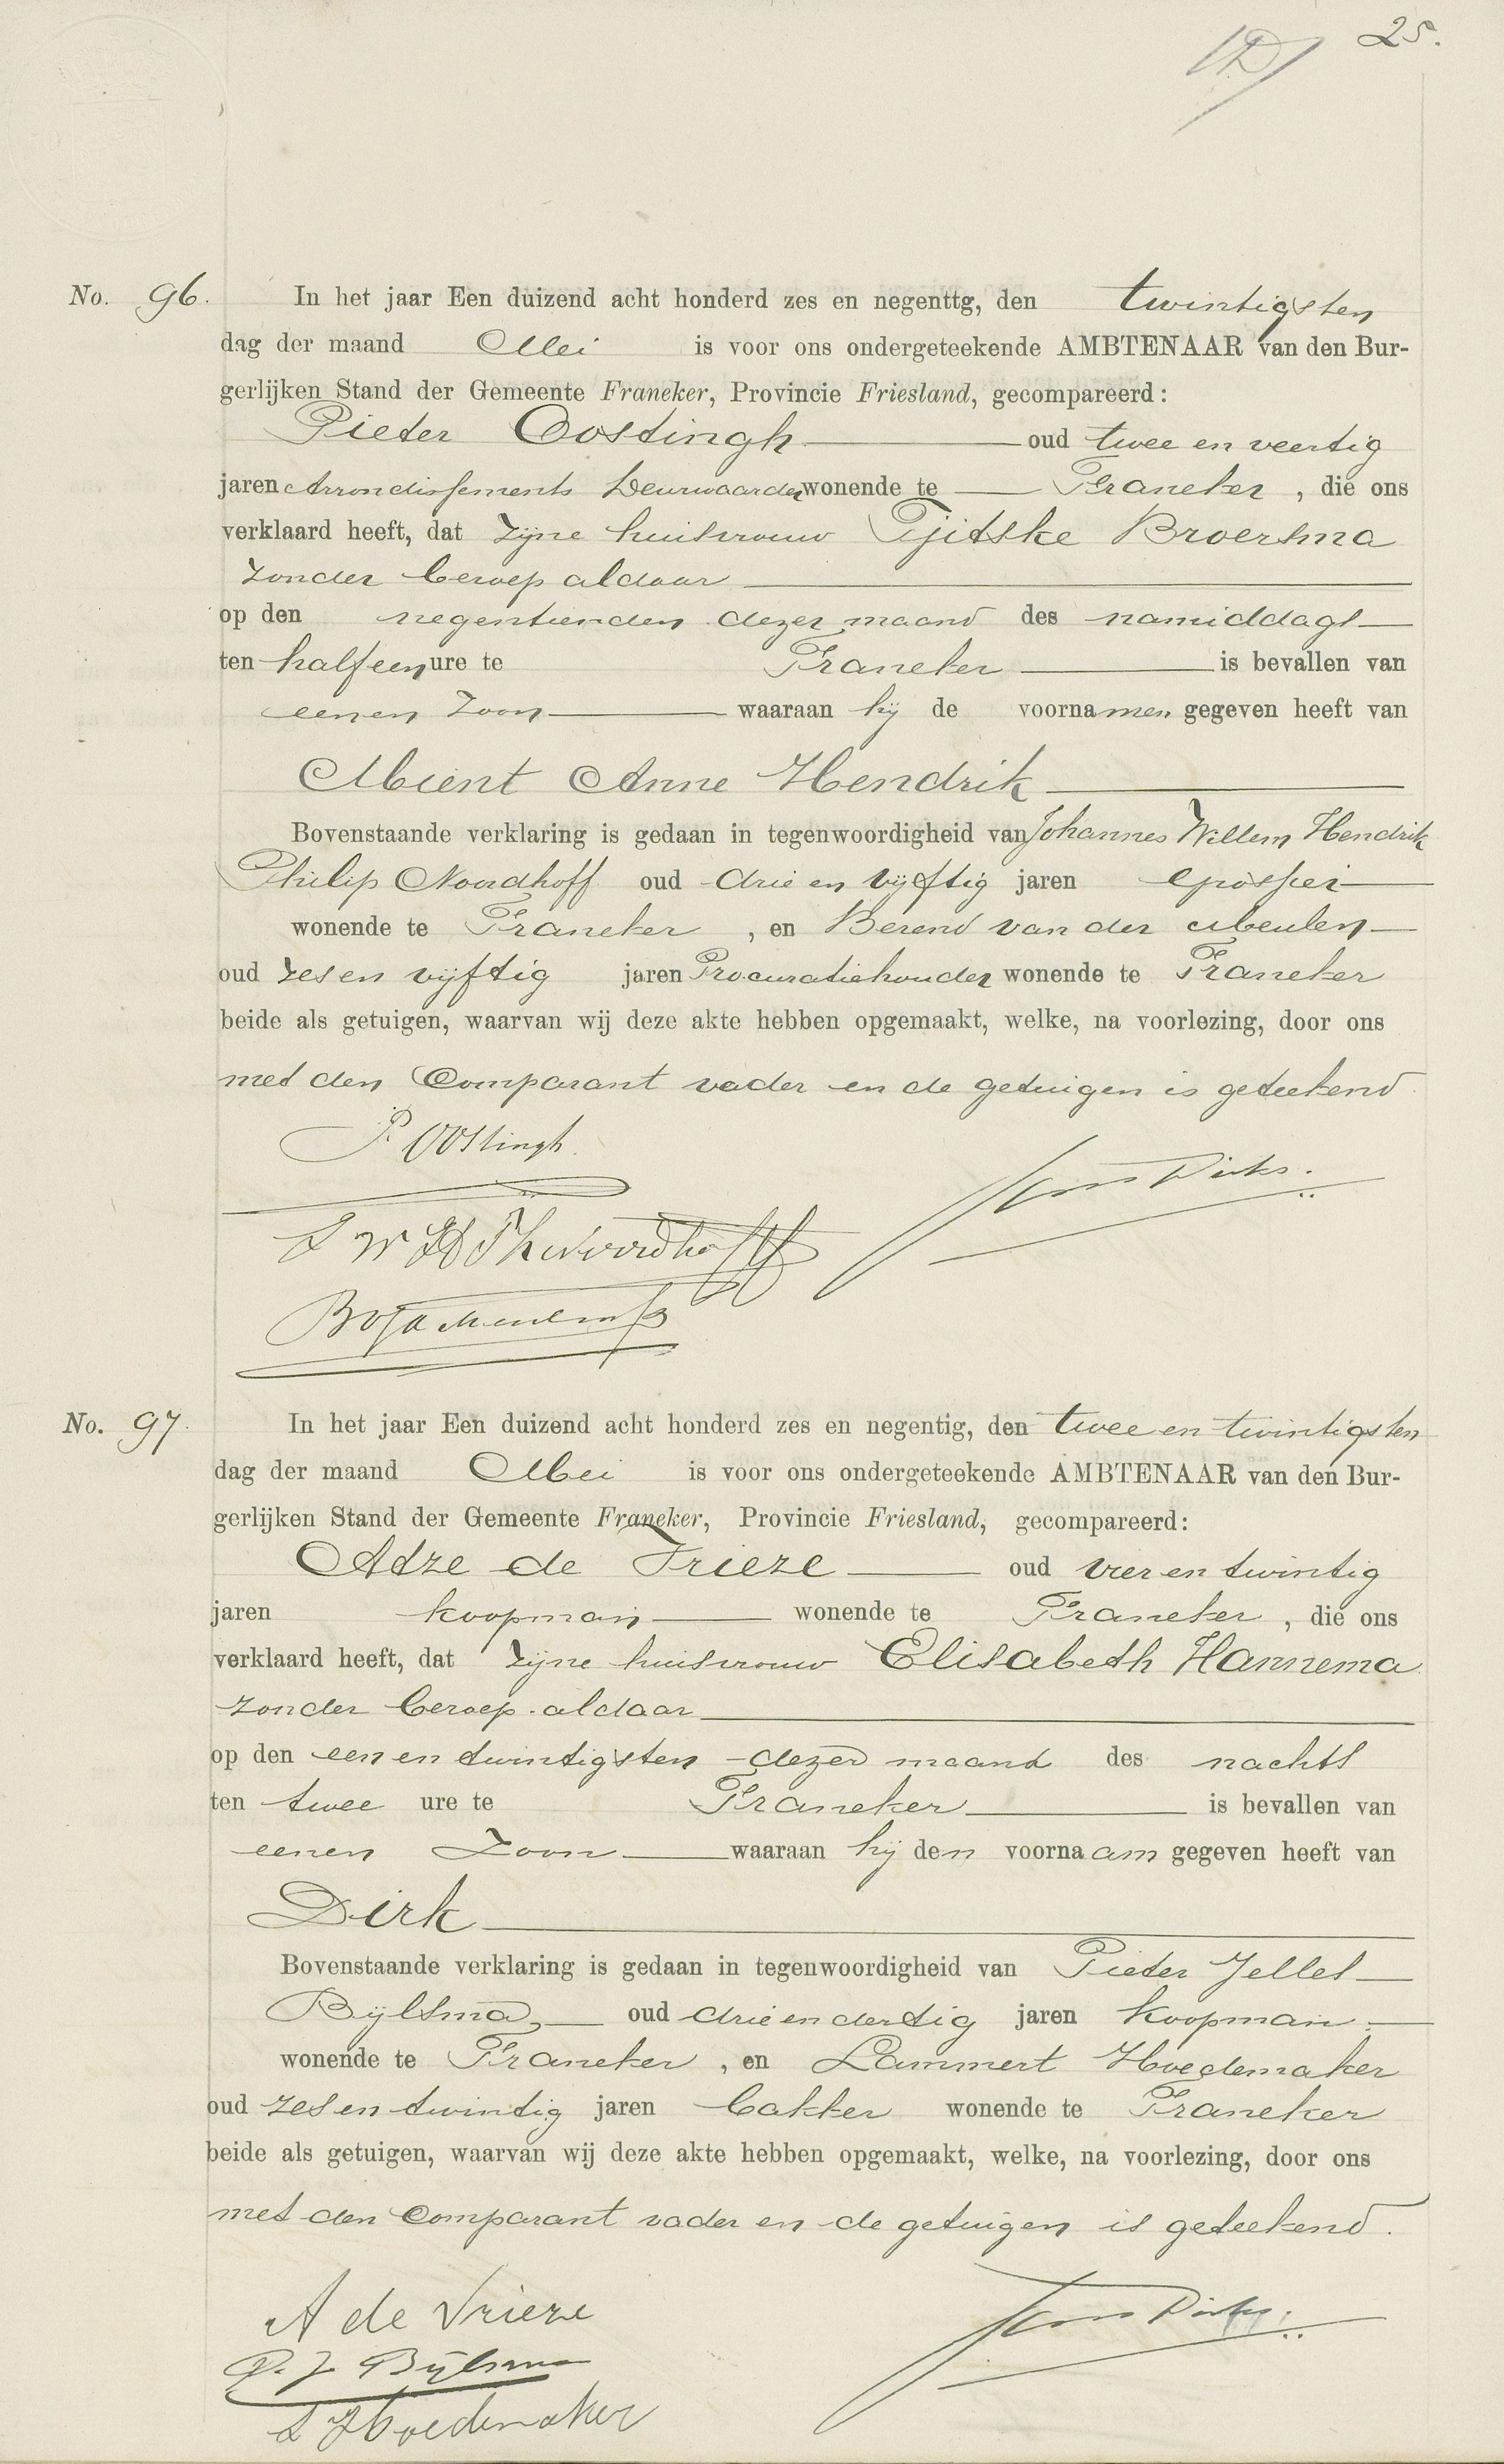 25.
No. 96. In het jaar Een duizend acht honderd zes en negenttg, den twintigsten
dag der maand Mei is voor ons ondergeteekende AMBTENAAR van den Bur-
gerlijken Stand der Gemeente Franeker, Provincie Friesland, gecompareerd:
Pieter Oostingh oud twee en veertig
jaren Arrondissements Deurwaarder wonende te Franeker, die ons
verklaard heeft, dat zijne huisvrouw Tjitske Broersma
zonder beroep aldaar
op den negentienden dezer maand des namiddags
ten half een ure te Franeker is bevallen van
eenen zoon waaraan hij de voornamen gegeven heeft van
Mient Anne Hendrik
Bovenstaande verklaring is gedaan in tegenwoordigheid van Johannes Willem Hendrik
Philip Noordhoff oud drie en vijftig jaren
wonende te Franeker, en Berend van der Meulen
oud zes en vijftig jaren Procuratiehouder wonende te Franeker
beide als getuigen, waarvan wij deze akte hebben opgemaakt, welke, na voorlezing, door ons
met den Comparant vader en de getuigen is geteekend
P. Oostingh.
J W H Ph Noordhoff
Dirks.
No. 97. In het jaar Een duizend acht honderd zes en negentig, den twee en twintigsten
dag der maand Mei is voor ons ondergeteekende AMBTENAAR van den Bur-
gerlijken Stand der Gemeente Franeker, Provincie Friesland, gecompareerd:
Atze de Frieze oud vier en twintig
jaren koopman wonende te Franeker, die ons
verklaard heeft, dat zijne huisvrouw Elisabeth Hannema
zonder beroep aldaar
op den een en twintigsten dezer maand des nachts
ten twee ure te Franeker is bevallen van
eenen zoon waaraan hij den voornaam gegeven heeft van
Dirk
Bovenstaande verklaring is gedaan in tegenwoordigheid van Pieter Jelles
Bijlsma, oud drie en dertig jaren koopman
wonende te Franeker, en Lammert Hoedemaker
oud zes en twintig jaren bakker wonende te Franeker
beide als getuigen, waarvan wij deze akte hebben opgemaakt, welke, na voorlezing, door ons
met den Comparant vader en de getuigen is geteekend.
A de Vrieze
P. J Bijlsma
L Hoedemaker
Dirks.